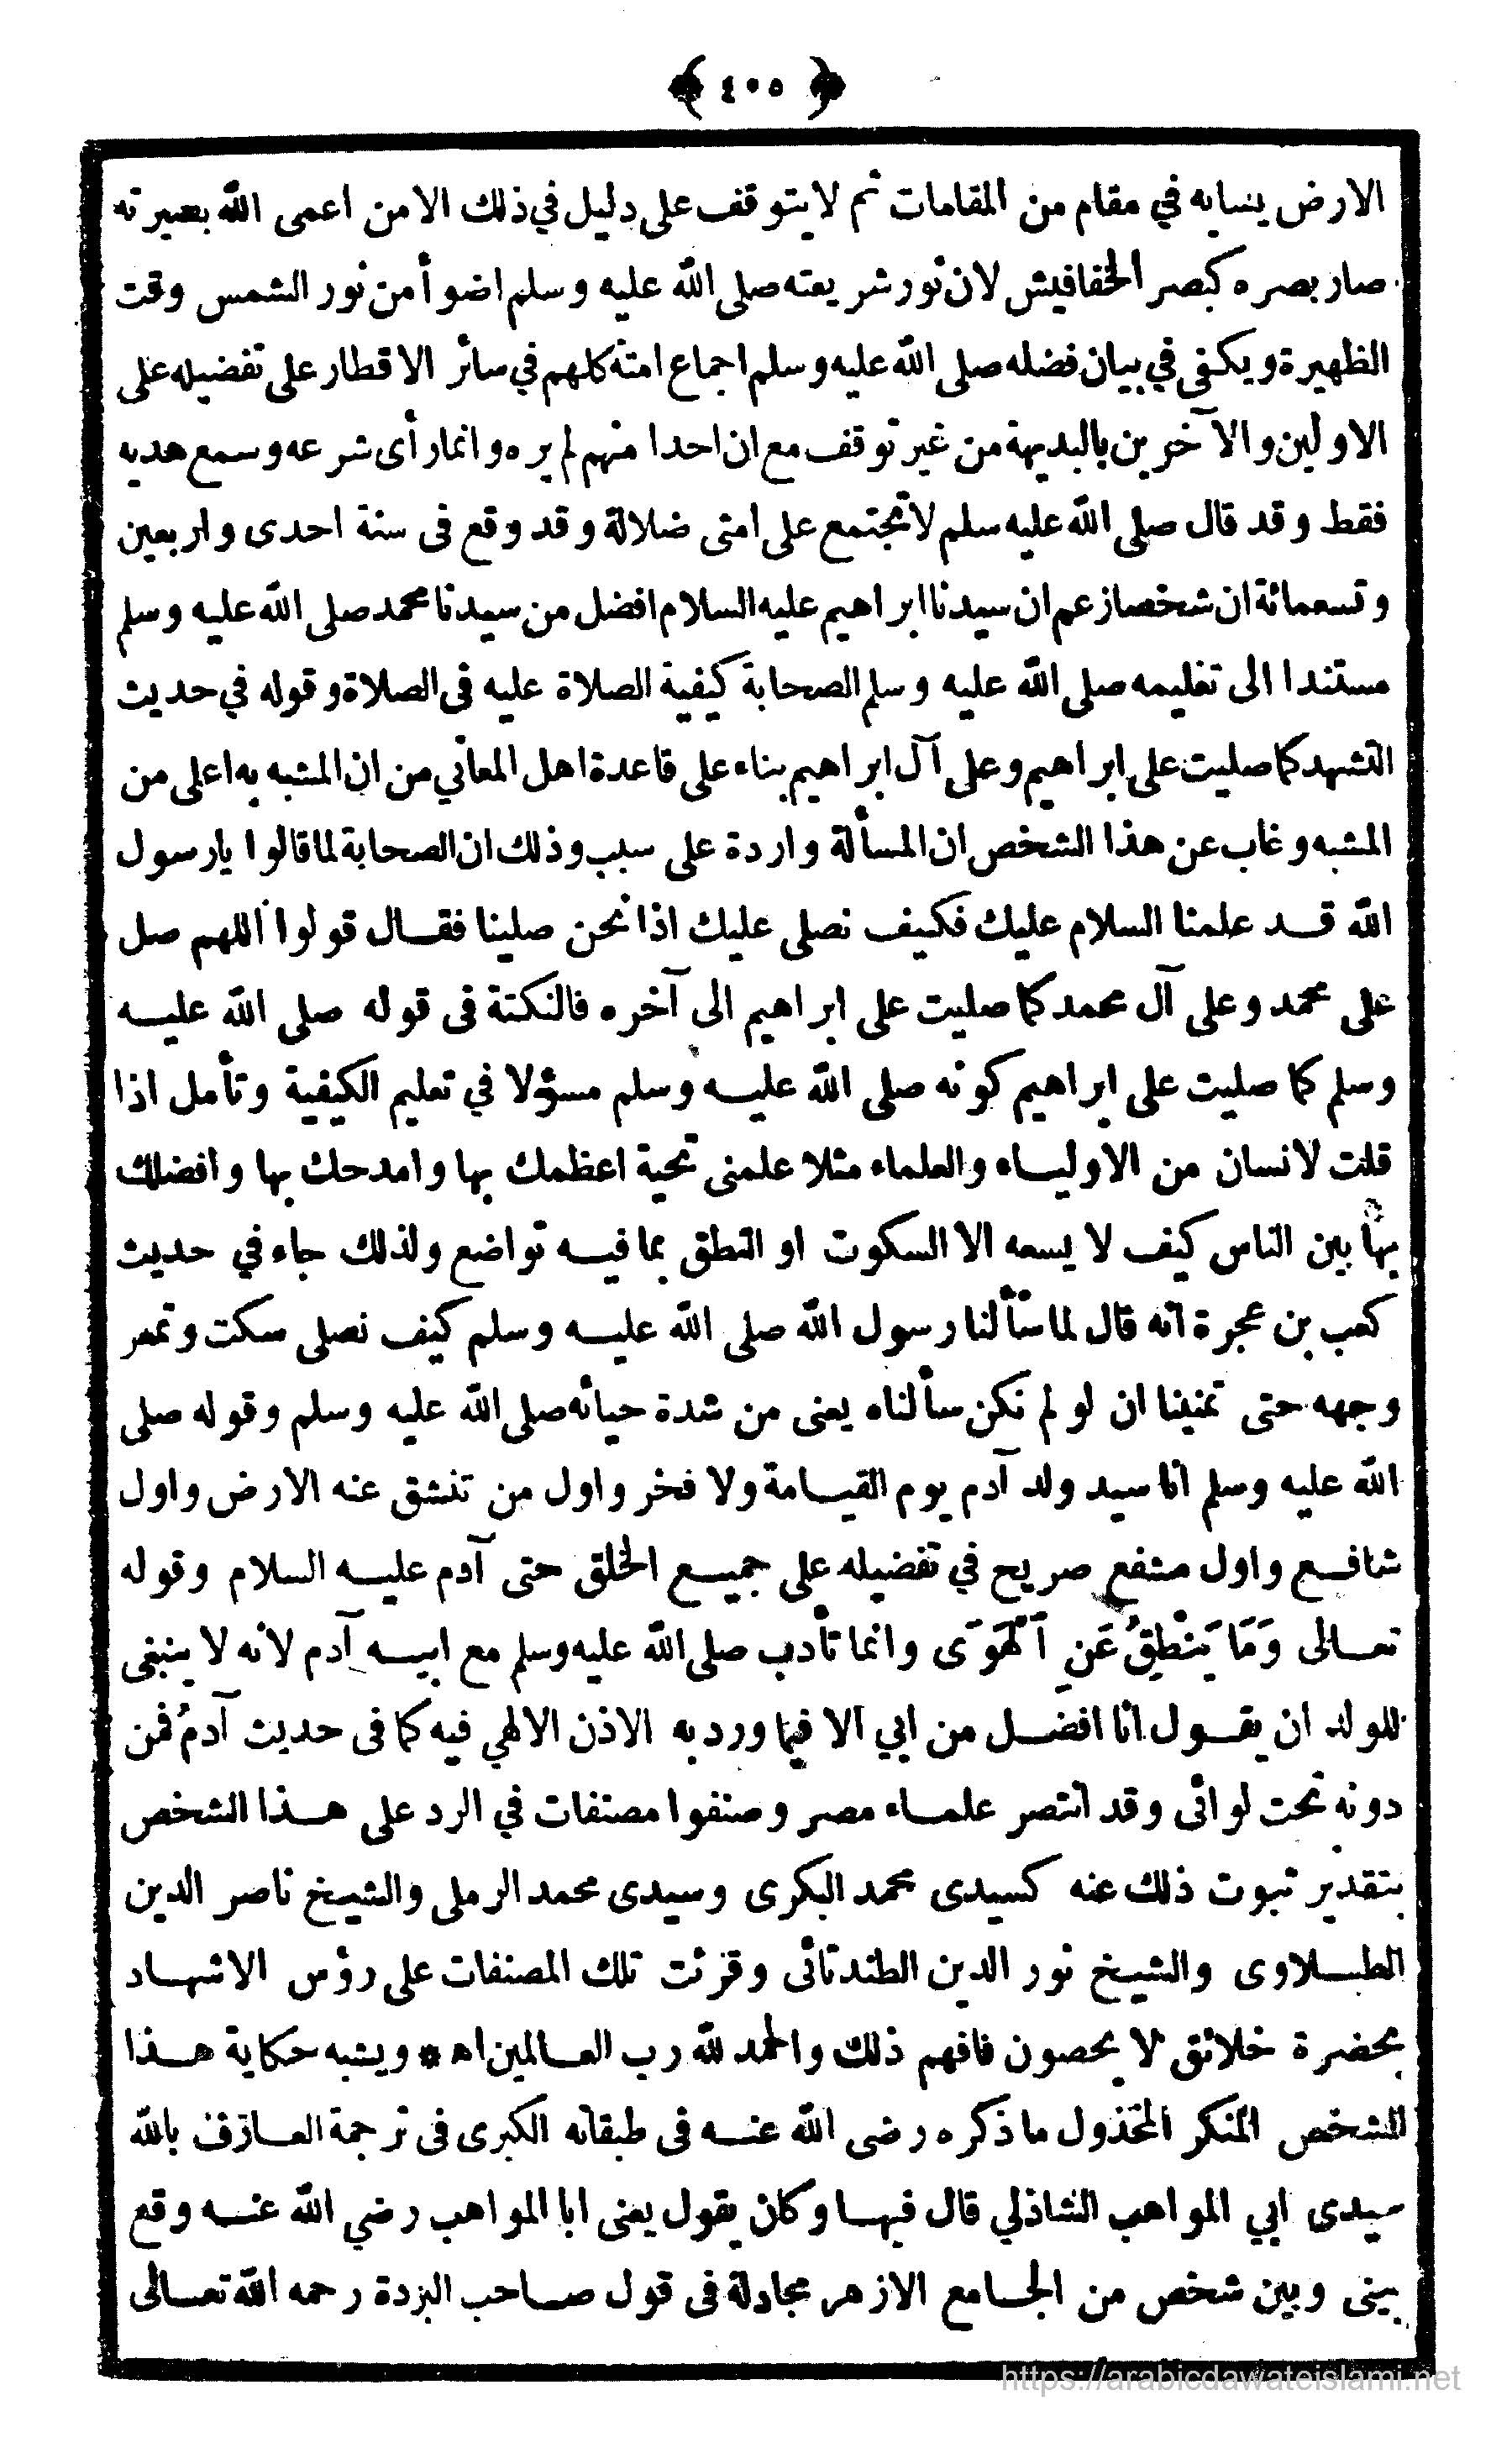 ﴿ ٤٠٥ ﴾
الارض يسابه في مقام من المقامات ثم لا يتوقف على دليل في ذلك الا من اعمى الله بصيرته
صار بصره كبصر الخفافيش لان نور شريعته صلى الله عليه وسلم اضوأ من نور الشمس وقت
الظهيرة ويكفى في بيان فضله صلى الله عليه وسلم اجماع امته كلهم في سائر الاقطار على تفضيله على
الاولين والآخرين بالبديهة من غير توقف مع ان احدا منهم لم يره وانما رأى شرعه وسمع هديه
فقط وقد قال صلى الله عليه سلم لا تجتمع على امتى ضلالة وقد وقع فى سنة احدى واربعين
وتسعمائة ان شخصا زعم ان سيدنا ابراهيم عليه السلام افضل من سيدنا محمد صلى الله عليه وسلم
مستندا الى تعليمه صلى الله عليه وسلم الصحابة كيفية الصلاة عليه فى الصلاة وقوله في حديث
التشهد كما صليت على ابراهيم وعلى آل ابراهيم بناء على قاعدة اهل المعاني من ان المشبه به اعلى من
المشبه وغاب عن هذا الشخص ان المسألة واردة على سبب وذلك ان الصحابة لما قالوا يا رسول
الله قد علمنا السلام عليك فكيف نصلى عليك اذا نحن صلينا فقال قولوا اللهم صل
على محمد وعلى آل محمد كما صليت على ابراهيم الى آخره فالنكتة فى قوله صلى الله عليه
وسلم كما صليت على ابراهيم كونه صلى الله عليه وسلم مسؤلا في تعليم الكيفية وتأمل اذا
قلت لانسان من الاولياء والعلماء مثلا علمنى تحية اعظمك بها وامدحك بها وافضلك
بها بين الناس كيف لا يسعه الا السكوت او النطق بما فيه تواضع ولذلك جاء في حديث
كعب بن عجرة انه قال لما سألنا رسول الله صلى الله عليه وسلم كيف نصلى سكت وتمعر
وجهه حتى تمنينا ان لو لم نكن سألناه يعنى من شدة حيائه صلى الله عليه وسلم وقوله صلى
الله عليه وسلم انا سيد ولد آدم يوم القيامة ولا فخر واول من تنشق عنه الارض واول
شافع واول مشفع صريح في تفضيله على جميع الخلق حتى آدم عليه السلام وقوله
تعالى وَمَا يَنْطِقُ عَنِ ٱلْهَوَى وانما تأدب صلى الله عليه وسلم مع ابيه آدم لانه لا ينبغى
للولد ان يقول انا افضل من ابي الا فيما ورد به الاذن الالهي فيه كما فى حديث آدم فمن
دونه تحت لوائى وقد انتصر علماء مصر وصنفوا مصنفات في الرد على هذا الشخص
بتقدير ثبوت ذلك عنه كسيدى محمد البكرى وسيدى محمد الرملى والشيخ ناصر الدين
الطبلاوى والشيخ نور الدين الطندتائى وقرئت تلك المصنفات على رؤس الاشهاد
بحضرة خلائق لا يحصون فافهم ذلك والحمد لله رب العالمين اه * ويشبه حكاية هذا
الشخص المنكر المخذول ما ذكره رضى الله عنه فى طبقاته الكبرى فى ترجمة العارف بالله
سيدى ابي المواهب الشاذلي قال فيها وكان يقول يعنى ابا المواهب رضي الله عنه وقع
بينى وبين شخص من الجامع الازهر مجادلة فى قول صاحب البردة رحمه الله تعالى
https://arabicdawateislami.net